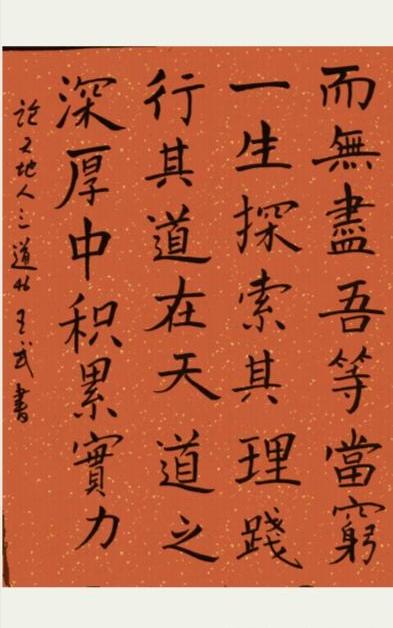 而無盡吾等當窮
一生探索其理踐
行其道在天道之
深厚中积累實力
論天地人三道帖 王武書